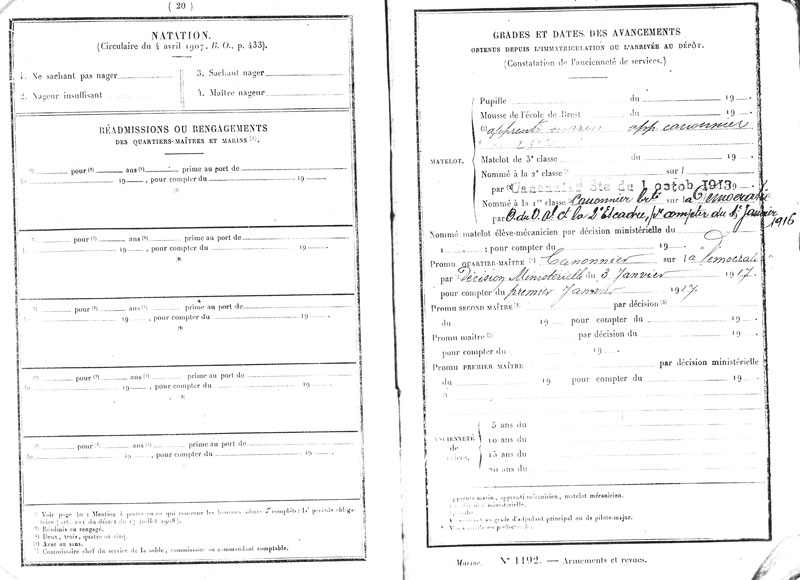 ( 20 )
NATATION.
(Circulaire du 4 avril 1907, B. O., p. 433).
1. Ne sachant pas nager
3. Sachant nager
2. Nageur insuffisant
4. Maître nageur
RÉADMISSIONS OU RENGAGEMENTS
DES QUARTIERS-MAÎTRES ET MARINS (1).
(2) pour (3) ans (4) prime au port de
le 19 , pour compter du 19
(5)
(2) pour (3) ans (4) prime au port de
le 19 , pour compter du 19
(5)
(2) pour (3) ans (4) prime au port de
le 19 , pour compter du 19
(5)
(2) pour (3) ans (4) prime au port de
le 19 , pour compter du 19
(5)
(2) pour (3) ans (4) prime au port de
le 19 , pour compter du 19
(5)
(1) Voir page
(2) Réadmis ou rengagé.
(3) Deux, trois, quatre ou cinq.
(4) Avec ou sans.
(5) Commissaire chef du service de la solde, commissaire ou commandant comptable.
GRADES ET DATES DES AVANCEMENTS
OBTENUS DEPUIS L'IMMATRICULATION OU L'ARRIVÉE AU DÉPÔT.
(Constatation de l'ancienneté de services.)
MATELOT.
Pupille du 19
Mousse de l'école de Brest du 19
apprenti marin app canonnier
Matelot de 3e classe du 19
Nommé à la 2e classe sur l
par Canonnier Bte du 1 octob 1913 19
Nommé à la 1re classe Canonnier bté sur la Démocratie
et la 2e Escadre, pr compter du 1er Janvier 1916
Nommé matelot élève-mécanicien par décision ministérielle du
; pour compter du 19
Promu QUARTIER-MAÎTRE Canonnier sur la "Démocratie"
par Décision Ministérielle du 3 Janvier 1917.
pour compter du premier Janvier 1917.
Promu SECOND MAÎTRE par décision
du 19 pour compter du 19
Promu MAÎTRE par décision du
pour compter du 19
Promu PREMIER MAÎTRE par décision ministérielle
du 19 pour compter du 19
ANCIENNETÉ
de
services.
5 ans du
10 ans du
15 ans du
20 ans du
apprenti marin, apprenti-mécanicien, matelot mécanicien.
grade d'adjudant principal ou de pilote-major.
Marine. N° 1192. — Armements et revues.